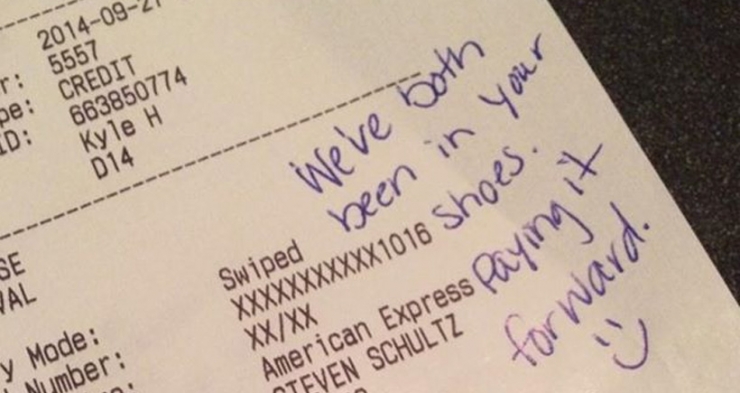 2014-09-2
5557
CREDIT
663850774
Kyle H
D14
r:
pe:
ID:
We've both
been in your
shoes.
Paying it
forward.
:)
SE
VAL
Swiped
XXXXXXXXXXX1016
XX/XX
American Express
STEVEN SCHULTZ
y Mode:
Number: